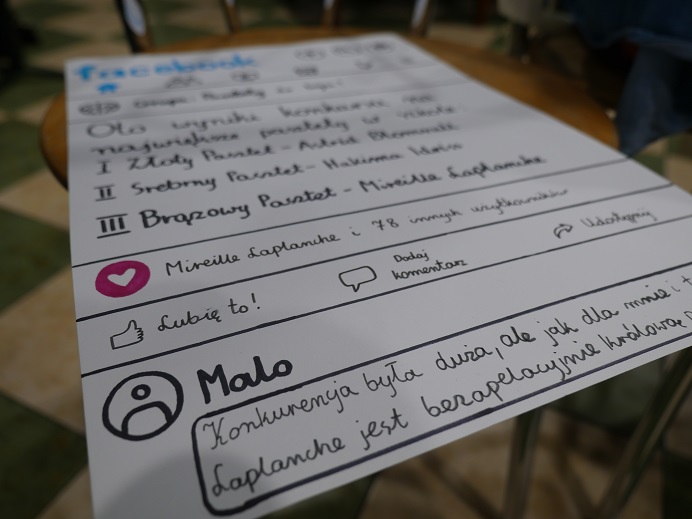 facebook
Grupa: Pasztety
Oto wyniki konkursu na
największe pasztety w szkole
I Złoty Pasztet - Astrid
II Srebrny Pasztet - Hakima Idriss
III Brązowy Pasztet - Mireille Laplanche
Mireille Laplanche i 78 innych użytkowników
Lubię to!
Dodaj
komentarz
Udostępnij
Malo
Konkurencja była duża, ale jak dla mnie i
Laplanche jest bezapelacyjnie królową